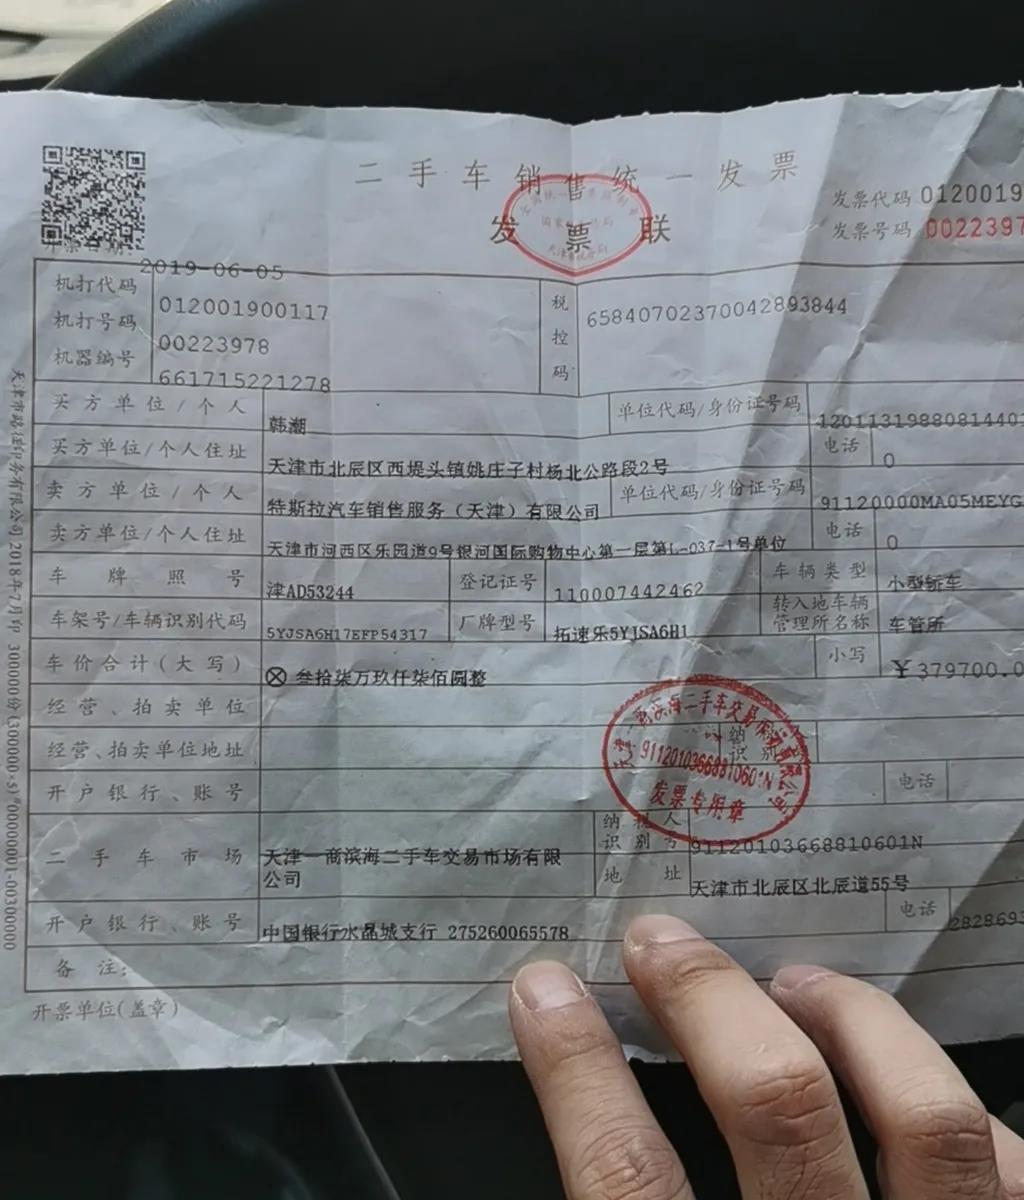 二手车销售统一发票
发票联
发票代码 0120019
发票号码 0022397
开票日期: 2019-06-05
机打代码 012001900117
机打号码 00223978
机器编号 661715221278
税控码 65840702370042893844
买方单位/个人 韩潮 单位代码/身份证号码 12011319880814401
买方单位/个人住址 天津市北辰区西堤头镇姚庄子村杨北公路段2号 电话 0
卖方单位/个人 特斯拉汽车销售服务（天津）有限公司 单位代码/身份证号码 91120000MA05MEYG
卖方单位/个人住址 天津市河西区乐园道9号银河国际购物中心第一层第L-037-1号单位 电话 0
车牌照号 津AD53244 登记证号 110007442462 车辆类型 小型轿车
车架号/车辆识别代码 5YJSA6H17EFP54317 厂牌型号 拓速乐5YJSA6H1 转入地车辆管理所名称 车管所
车价合计(大写) ⊗ 叁拾柒万玖仟柒佰圆整 小写 ￥379700.0
经营、拍卖单位
经营、拍卖单位地址 纳 识别
开户银行、账号 电话
二手车市场 天津一商滨海二手车交易市场有限公司 纳税人识别号 91120103668810601N
地址 天津市北辰区北辰道55号
开户银行、账号 中国银行水晶城支行 275260065578 电话 282869
备注:
开票单位(盖章)
91120103668810601N
发票专用章